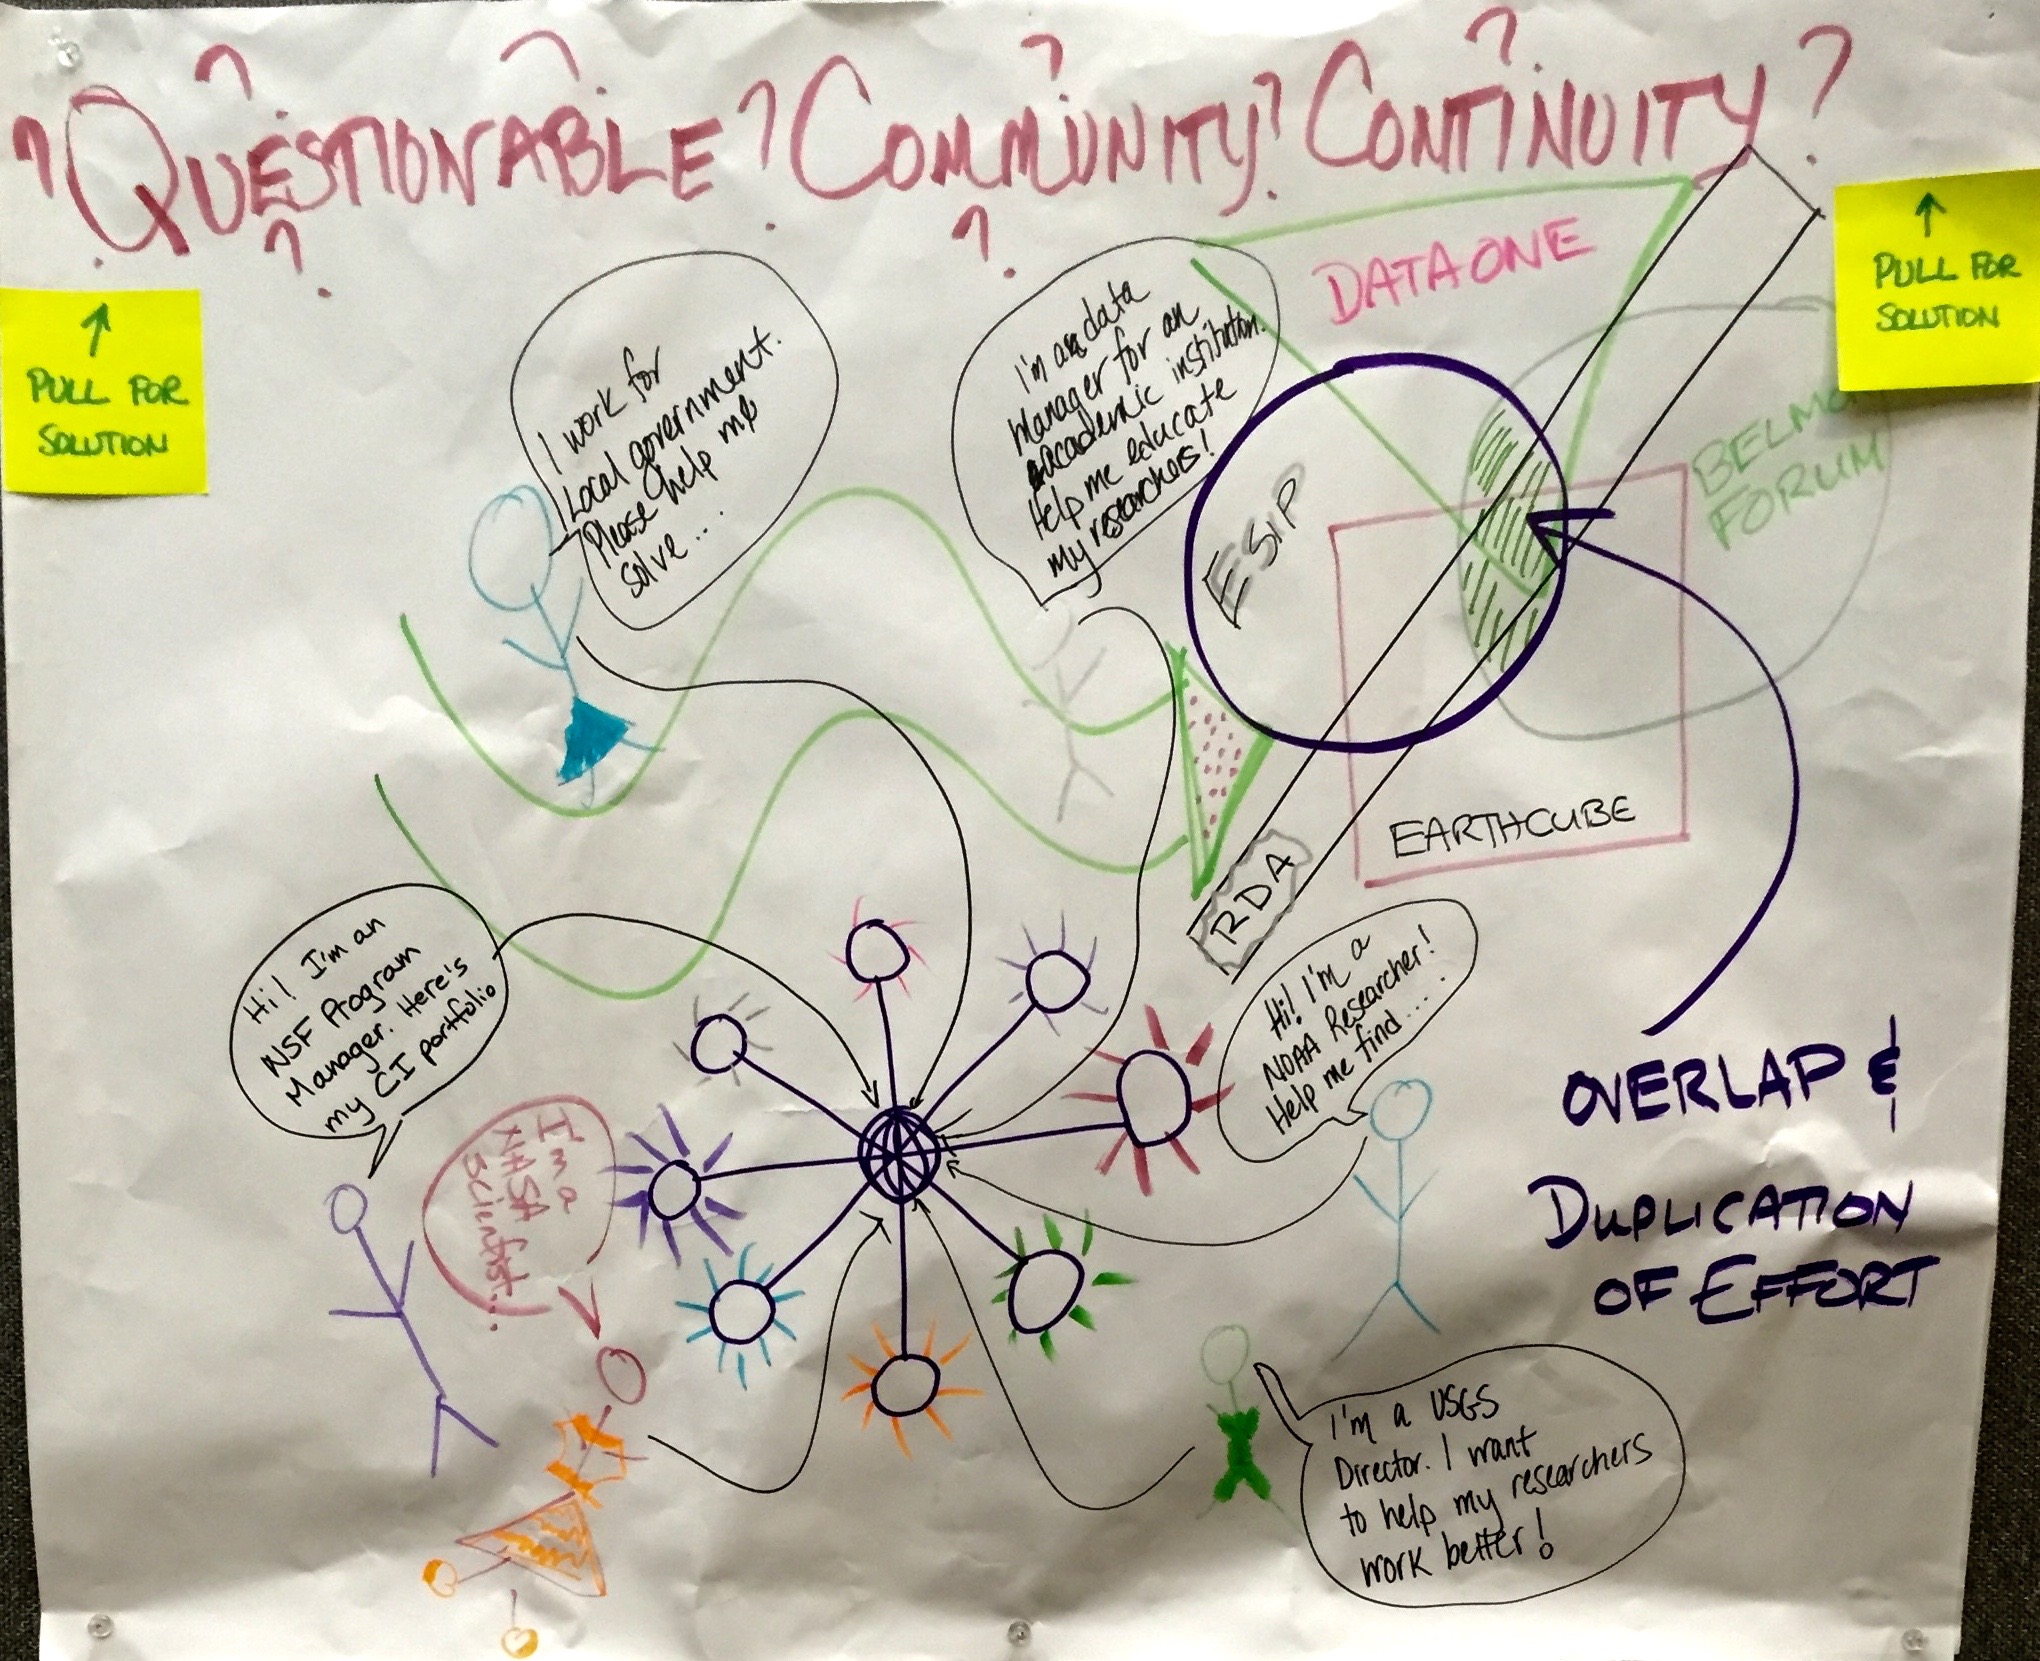 ? QUESTIONABLE ? COMMUNITY? CONTINUITY ?
↑
PULL FOR
SOLUTION
↑
PULL FOR
SOLUTION
I work for
Local government.
Please help me
solve...
I'm a data
Manager for an
academic institution.
Help me educate
my researchers!
DATAONE
ESIP
FORUM
EARTHCUBE
RDA
Hi! I'm an
NSF Program
Manager. Here's
my CI portfolio
I'm a
NASA
Scientist...
Hi! I'm a
NOAA Researcher!
Help me find....
OVERLAP &
DUPLICATION
OF EFFORT
I'm a USGS
Director. I want
to help my researchers
work better!